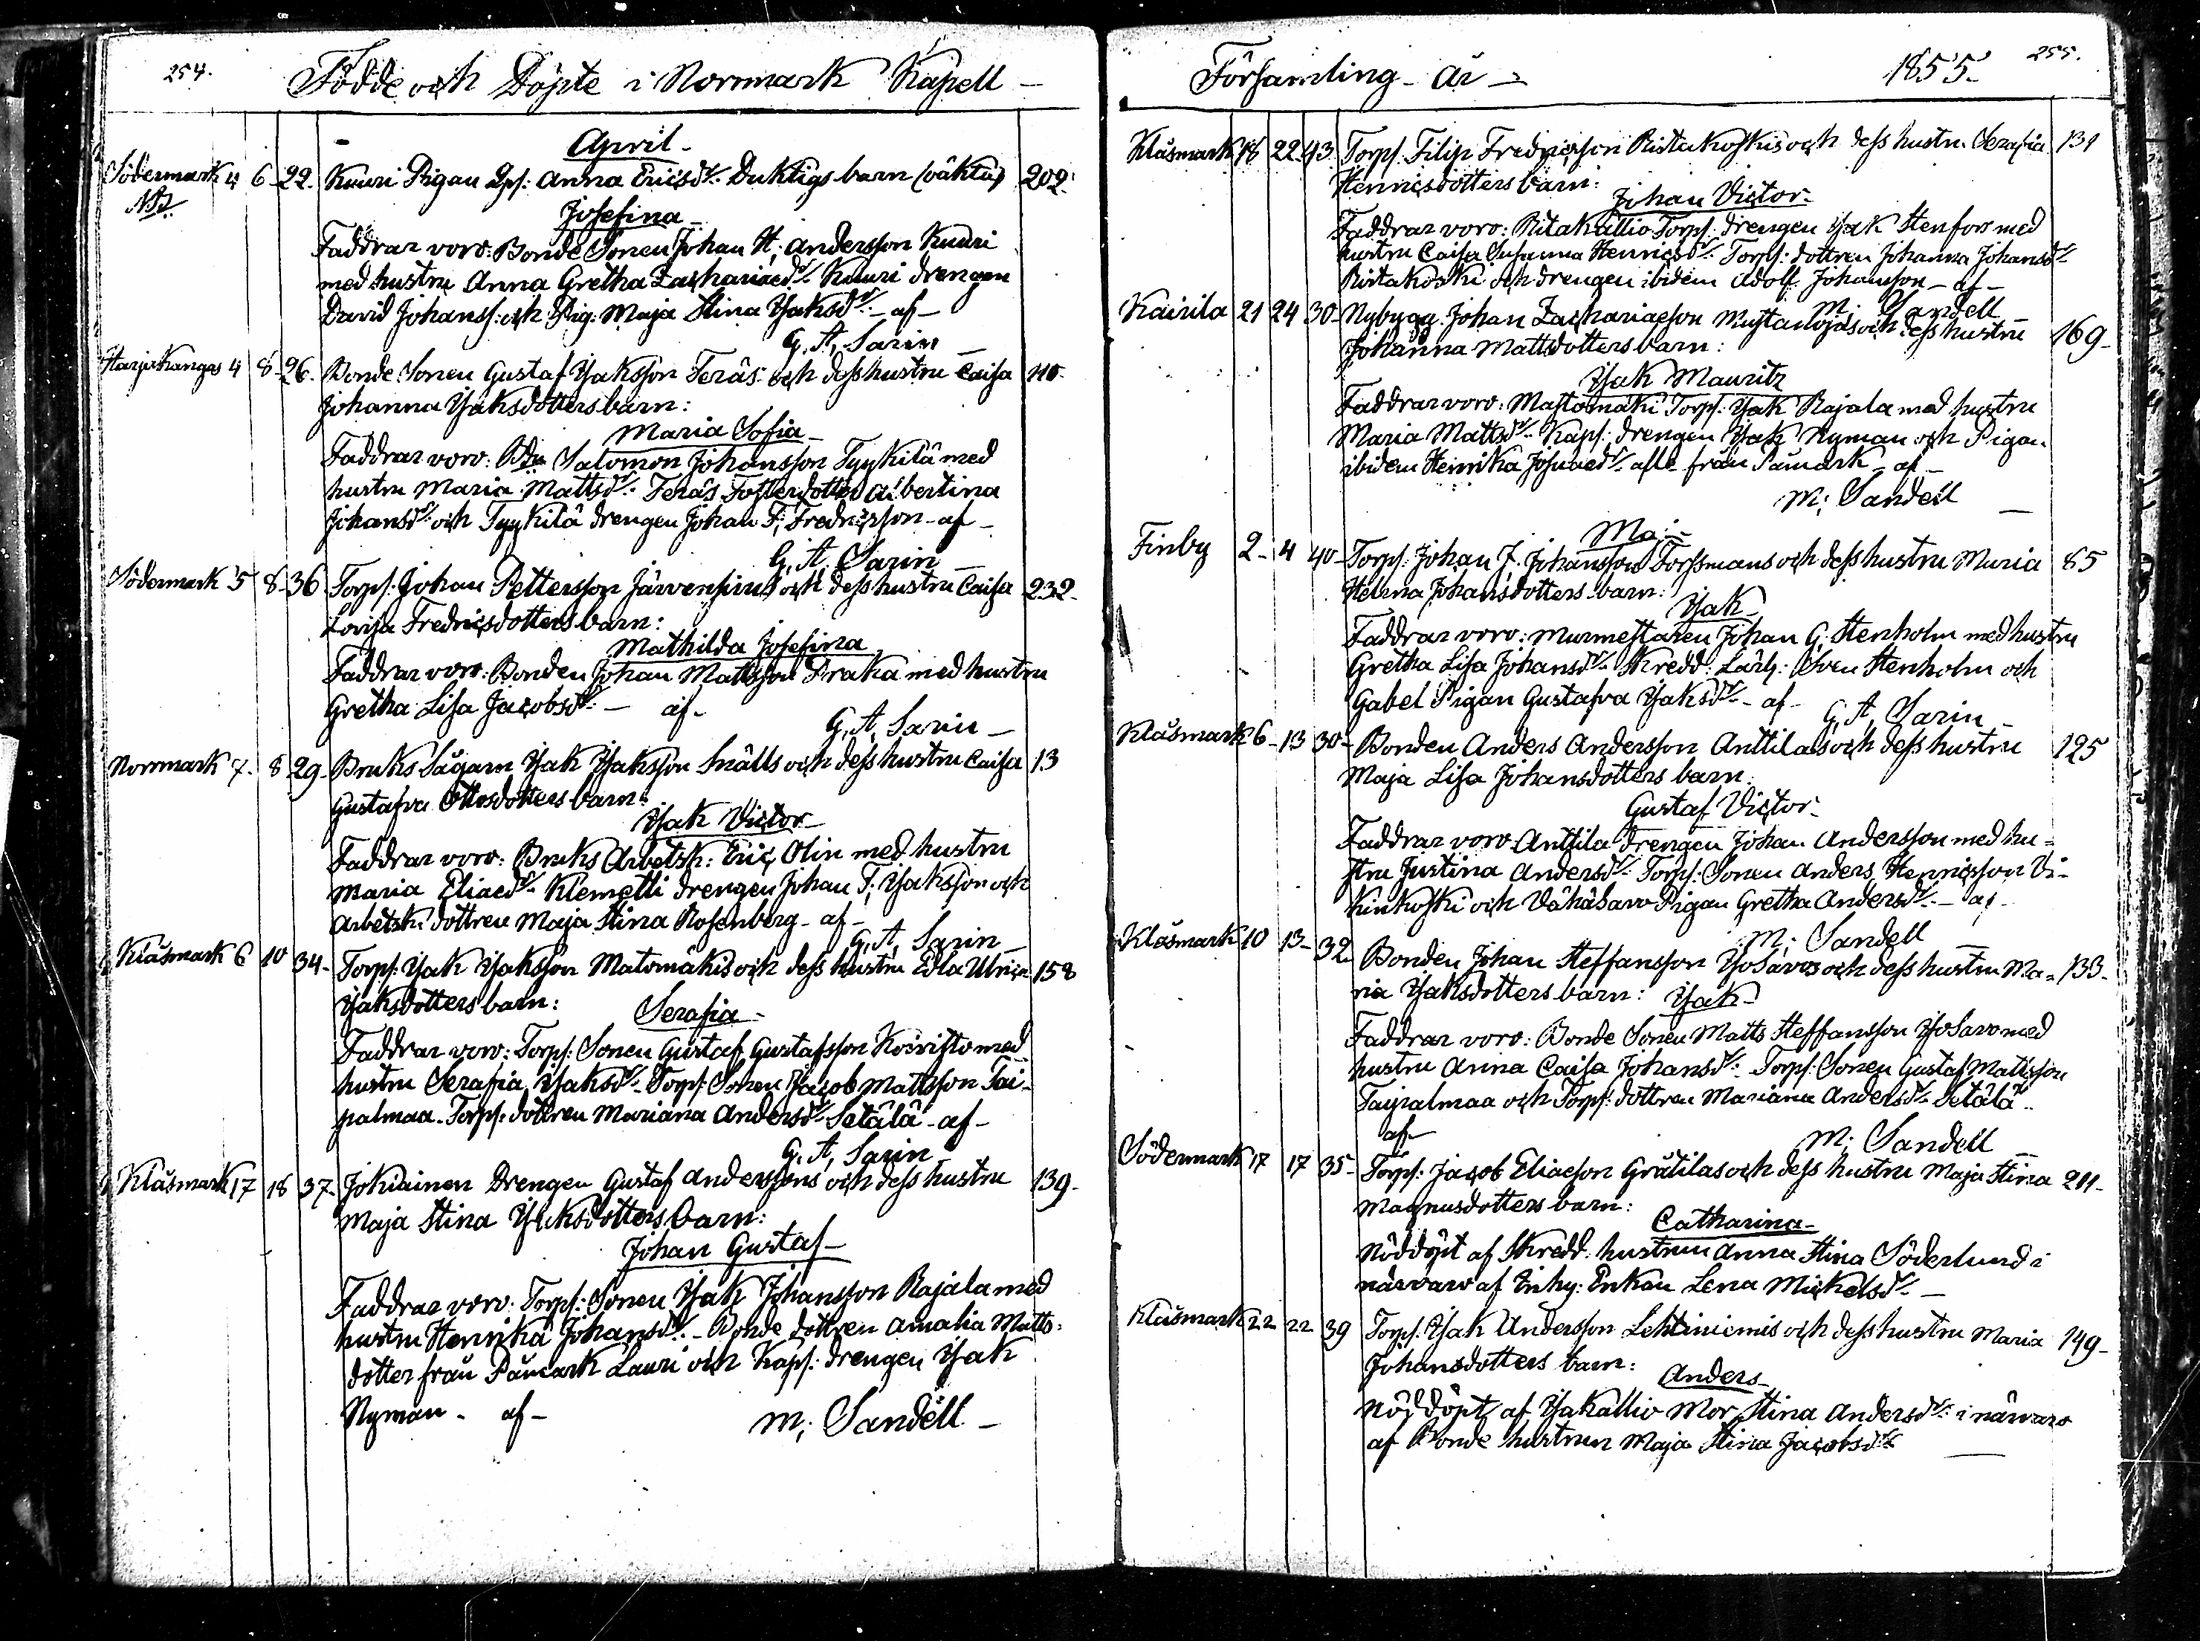 254.
Födde och Döpte i Norrmark Kapell –
April
Södermark 4 6 22. Knuuri Pigan Qps: Anna Ericsdr. Duktigs barn (oäkta) 202
NB.
Josefina
Faddrar voro: Bonde Sonen Johan H: Andersson Knuuri
med hustru Anna Gretha Zachariaedr. Knuuri drengen
David Johanss: och Pig: Maja Stina Isaksdr. – af –
G. A. Sarin
Harjakangas 4 8 26. Bonde Sonen Gustaf Isaksson Teräs och dess hustru Caisa 110
Johanna Isaksdotters barn:
Maria Sofia
Faddrar voro: Bdn Salomon Johansson Tyykilä med
hustru Maria Mattsdr. Teräs Fosterdotter Albertina
Johansdr. och Tyykilä drengen Johan F: Fredricsson – af –
G. A. Sarin
Södermark 5 8 36 Torp: Johan Pettersson Järvenpäns och dess hustru Caisa 232
Lovisa Fredricsdotters barn:
Mathilda Josefina
Faddrar voro: Bonden Johan Mattsson Praka med hustru
Gretha Lisa Jacobsdr. – af –
G. A. Sarin –
Norrmark 7 8 29 Bruks Sågarn Isak Isaksson Snälls och dess hustru Caisa 13
Gustafva Ottosdotters barn:
Isak Victor
Faddrar voro: Bruks Arbetsk: Eric Olin med hustru
Maria Eliaedr. Klemetti drengen Johan F: Isaksson och
Arbetsk: dottren Maja Stina Rosenberg – af –
G. A. Sarin
Klåsmark 6 10 34 Torp: Isak Isaksson Matomäkis och dess hustru Edla Ulrica 158
Isaksdotters barn:
Serafia
Faddrar voro: Torp: Sonen Gustaf Gustafsson Koivisto med
hustru Serafia Isaksdr. Torp: Sonen Jacob Mattsson Tai-
palmaa. Torp: dottren Mariana Andersdr. Setälä – af –
G. A. Sarin
Klåsmark 17 18 37. Jokiainen Drengen Gustaf Anderssons och dess hustru 139
Maja Stina Isaksdotters barn:
Johan Gustaf
Faddrar voro: Torp: Sonen Isak Johansson Rajala med
hustru Henrika Johansdr. – Bonde dottren Amalia Matts-
dotter från Påmark Lauri och Kaps: drengen Isak
Nyman – af –
M: Sandell –
Församling – år – 1855 255.
Klåsmark 18 22 43 Torp: Filip Fredricsson Ristakoskis och dess hustru Serafia 131
Henricsdotters barn:
Johan Victor
Faddrar voro: Ritakallio Torp: drengen Isak Stenfors med
hustru Caisa Susanna Henricsdr. Torp: dottren Johanna Johansdr.
Ristakoski och drengen ibidem Adolf Johansson – af –
M: Sandell
Kairila 21 24 30 Nybygg: Johan Zachariaeson Mustaojas och dess hustru 169
Johanna Mattsdotters barn:
Isak Mauritz
Faddrar voro: Mastomäki Torp: Isak Rajala med hustru
Maria Mattsdr. Kaps: drengen Isak Nyman och Pigan
ibidem Henrika Josuaedr. alla från Påmark – af –
M: Sandell
Maj
Finby 2 4 40 Torp: Johan J. Johansson Forssmans och dess hustru Maria 85
Helena Johansdotters barn:
Isak
Faddrar voro: Murmestaren Johan G. Stenholm med hustru
Gretha Lisa Johansdr. Skredd: Lärl: Sven Stenholm och
Gabel Pigan Gustafva Isaksdr. – af –
G. A. Sarin
Klåsmark 6 13 30 Bonden Anders Andersson Anttilas och dess hustru 125
Maja Lisa Johansdotters barn:
Gustaf Victor
Faddrar voro Anttila Drengen Johan Andersson med hu-
stru Justina Andersdr. Torp: Sonen Anders Henricsson Vi-
kinkoski och Vähäsavo Pigan Gretha Andersdr. – af –
M: Sandell
Klåsmark 10 13 32 Bonden Johan Steffansson Isosavos och dess hustru Ma- 133
ria Isaksdotters barn:
Isak
Faddrar voro: Bonde Sonen Matts Steffansson Isosavo med
hustru Anna Caisa Johansdr. Torp: Sonen Gustaf Mattsson
Taipalmaa och Torp: dottren Mariana Andersdr. Setälä
af –
M: Sandell
Södermark 17 17 35 Torp: Jacob Eliaeson Gråtilas och dess hustru Maja Stina 211
Magnusdotters barn:
Catharina
Nöddöpt af Skredd: hustrun Anna Stina Söderlund i
närvaro af Inhy: Enkan Lena Mickelsdr. –
Klåsmark 22 22 39 Torp: Isak Andersson Lehtiniemis och dess hustru Maria 149
Johansdotters barn:
Anders
Nöddöpt af Isakallio Mor Stina Andersdr. i närvaro
af Bonde hustrun Maja Stina Jacobsdr.